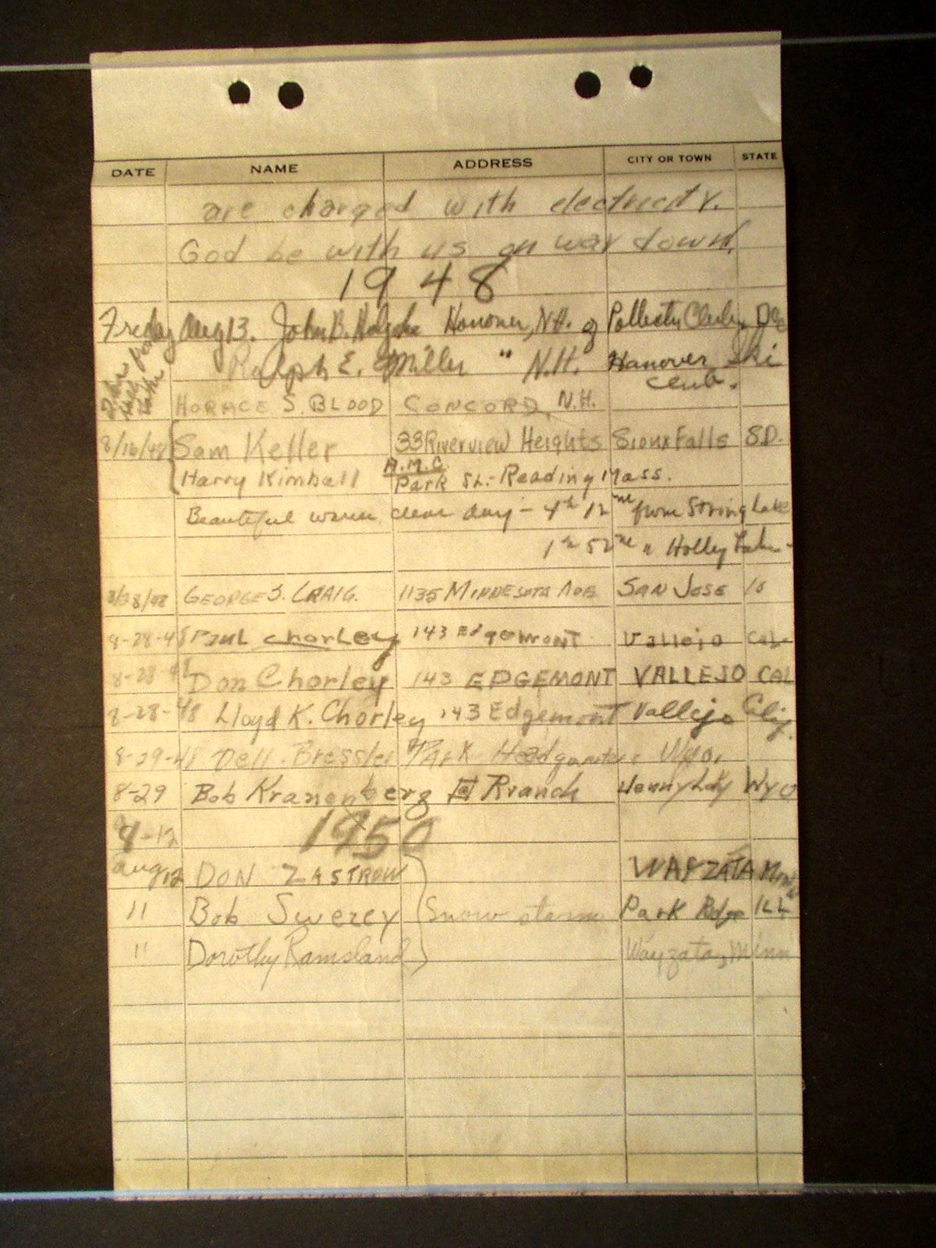 DATE NAME ADDRESS CITY OR TOWN STATE
are charged with electricity.
God be with us on way down.
1948
Friday Aug 13. John B. Hanover, N.H. of
Ralph E. Miller " N.H. Hanover Ski
Club.
HORACE S. BLOOD CONCORD, N.H.
8/16/48 Sam Keller 33 Riverview Heights Sioux Falls S.D.
A.M.C.
Harry Kimball Park St. - Reading Mass.
Beautiful warm clear day - 4 hr 12 me from String Lake
1 hr 52 me " Holly Lake -
8/28/48 GEORGE S. CRAIG. 1135 MINNESOTA AVE SAN JOSE 10
8-28-48 Paul Chorley 143 Edgemont Vallejo Cal
8-28-48 Don Chorley 143 EDGEMONT VALLEJO CAL
8-28-48 Lloyd K. Chorley 143 Edgemont Vallejo Calif.
8-29-48 Dell Bressler Park Headquarters Wyo.
8-29 Bob Kranenberg Ranch Wyo
8-12 1950
Aug 12 DON ZASTROW WAYZATA Minn
11 Bob Swerey Snow storm Park Rdge ILL
11 Dorothy Ramsland Wayzata, Minn